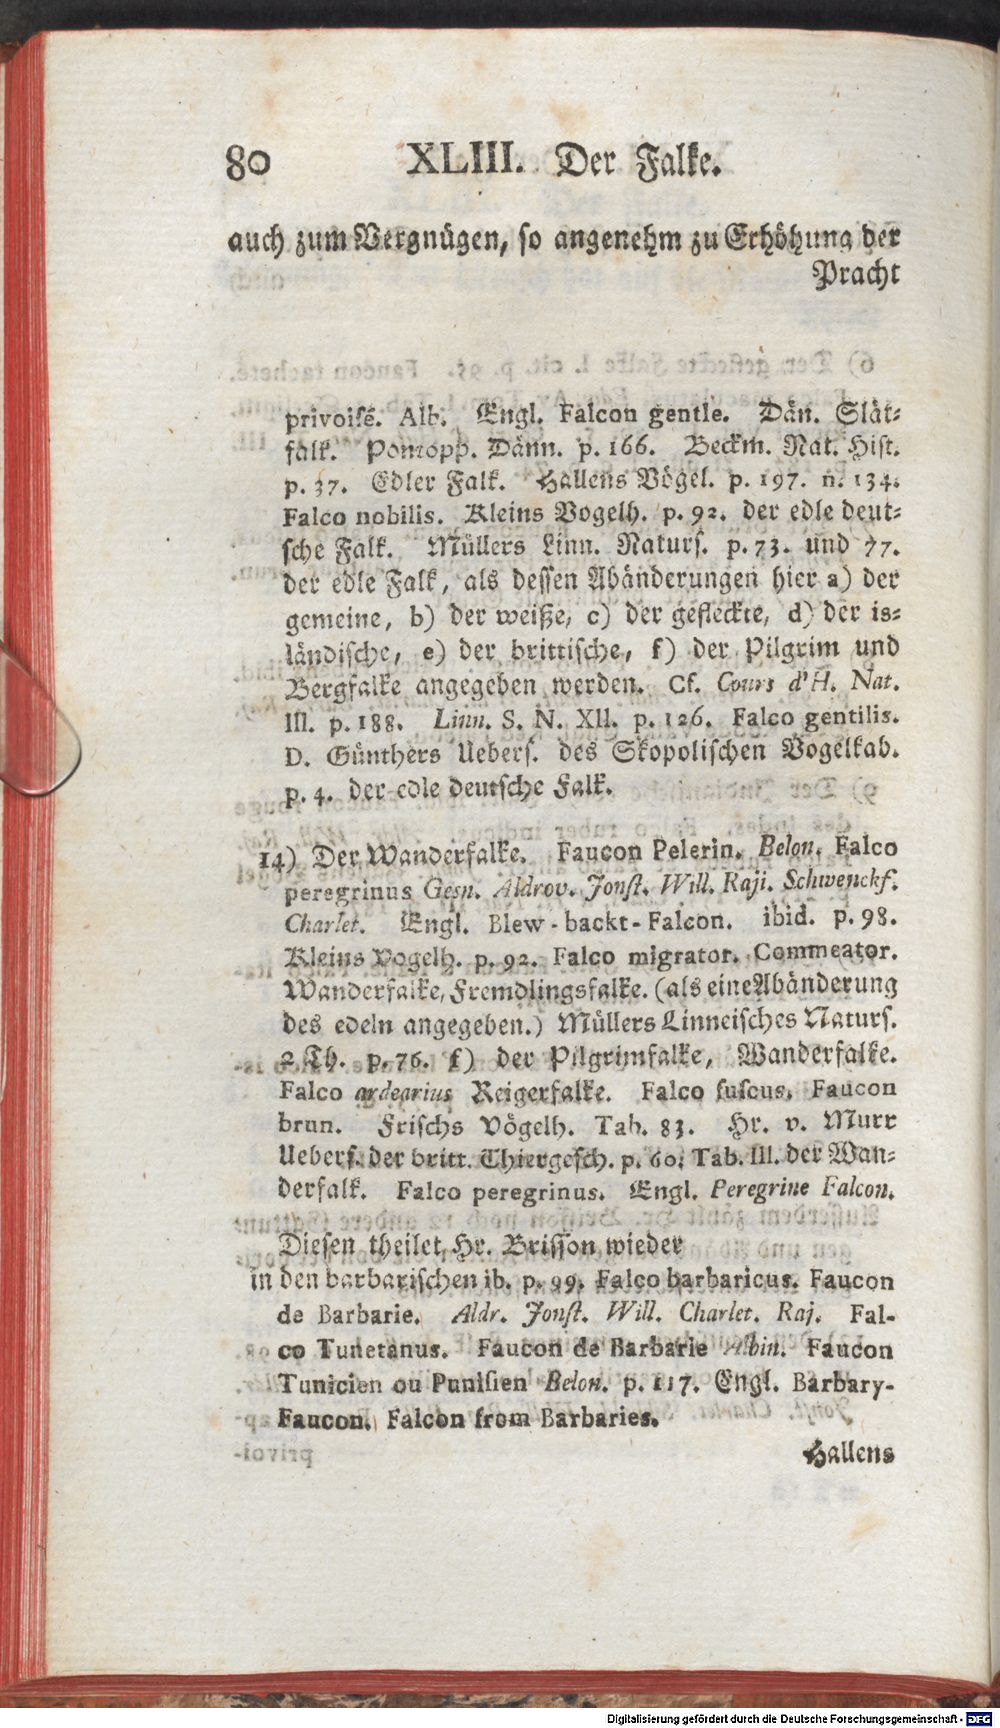 80 XLIII. Der Falke.
auch zum Vergnügen, so angenehm zu Erhöhung der
Pracht
privoisé. Alb. Engl. Falcon gentle. Dän. Slät-
falk. Pontopp. Dänn. p. 166. Beckm. Nat. Hist.
p. 37. Edler Falk. Hallens Vögel. p. 197. n. 134.
Falco nobilis. Kleins Vogelh. p. 92. der edle deut-
sche Falk. Müllers Linn. Naturs. p. 73. und 77.
der edle Falk, als dessen Abänderungen hier a) der
gemeine, b) der weiße, c) der gefleckte, d) der is-
ländische, e) der brittische, f) der Pilgrim und
Bergfalke angegeben werden. Cf. Cours d'H. Nat.
III. p. 188. Linn. S. N. XII. p. 126. Falco gentilis.
D. Günthers Uebers. des Skopolischen Vogelkab.
p. 4. der edle deutsche Falk.
14) Der Wanderfalke. Faucon Pelerin. Belon. Falco
peregrinus Gesn. Aldrov. Jonst. Will. Raji. Schwenckf.
Charlet. Engl. Blew-backt-Falcon. ibid. p. 98.
Kleins Vogelh. p. 92. Falco migrator. Commeator.
Wanderfalke, Fremdlingsfalke. (als eine Abänderung
des edeln angegeben.) Müllers Linneisches Naturs.
2 Th. p. 76. f) der Pilgrimfalke, Wanderfalke.
Falco ardearius Reigerfalke. Falco fuscus. Faucon
brun. Frischs Vögelh. Tab. 83. Hr. v. Murr
Uebers. der britt. Thiergesch. p. 60. Tab. III. der Wan-
derfalk. Falco peregrinus. Engl. Peregrine Falcon.
Diesen theilet Hr. Brisson wieder
in den barbarischen ib. p. 99. Falco barbaricus. Faucon
de Barbarie. Aldr. Jonst. Will. Charlet. Raj. Fal-
co Tunetanus. Faucon de Barbarie Albin. Faucon
Tunicien ou Punisien Belon. p. 117. Engl. Barbary-
Faucon. Falcon from Barbaries.
Hallens
Digitalisierung gefördert durch die Deutsche Forschungsgemeinschaft - DFG